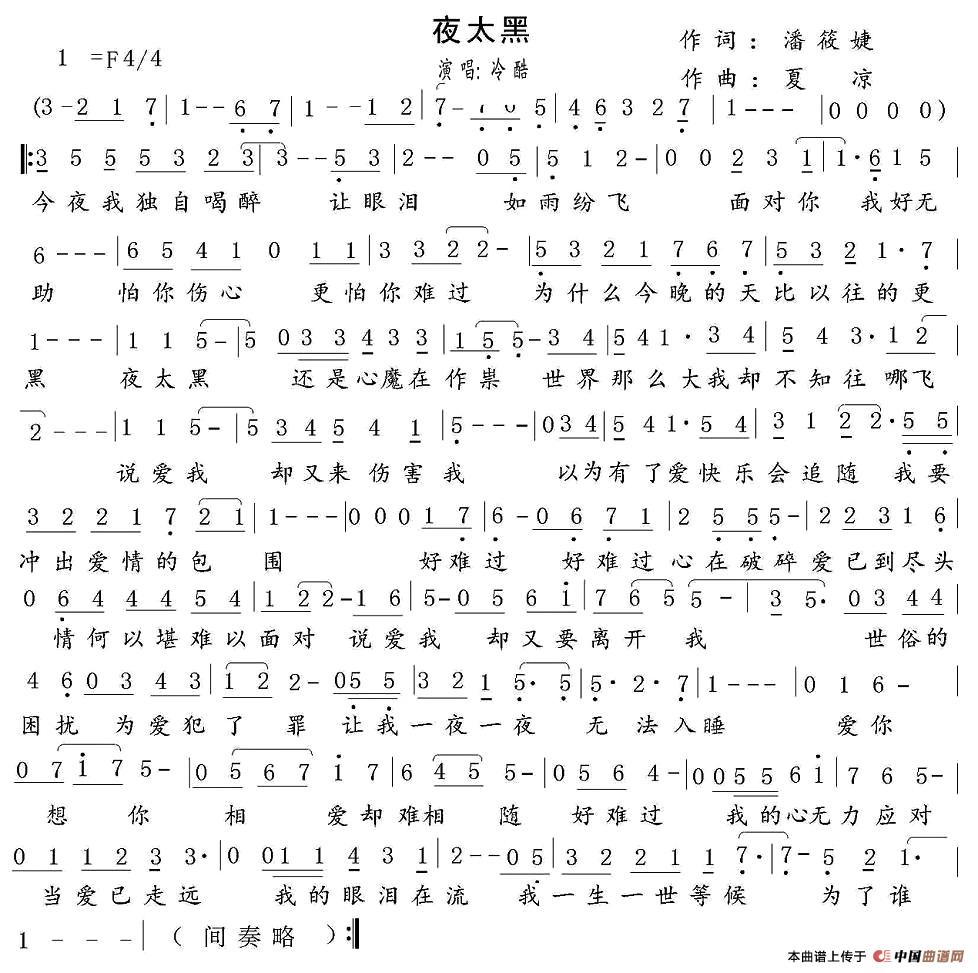 夜太黑
作词：潘筱婕
1=F4/4
演唱:冷酷
作曲：夏 凉
(3-217|1--67|1--12|7-765|46327|1---|0000)
|:3555323|3--53|2--05|512-|002311|1·615|
今夜我独自喝醉 让眼泪 如雨纷飞 面对你 我好无
6---|6541011|3322 2-|5321767|532 2·7|
助 怕你伤心 更怕你难过 为什么今晚的天比以往的更
1---|115-|5033433|155-34|5541·34|543·12|
黑 夜太黑 还是心魔在作祟 世界那么大我却不知往哪飞
2---|115-|534541|5---|034|541·54|312 2·55|
说爱我 却又来伤害我 以为有了爱快乐会追随 我要
3221721|1---|00017|6-067|1255 5-|223 16|
冲出爱情的包 围 好难过 好难过心在破碎爱已到尽头
0644454|122-16|5-0561|765|5-35·|0344|
情何以堪难以面对 说爱我 却又要离开 我 世俗的
460343|122-055|3215·5|5·2·7|1---|016-|
困扰 为爱犯了 罪 让我一夜一夜 无 法入睡 爱你
07175-|056717|6455-|0564-|005561|765-|
想 你 相 爱却难相 随 好难过 我的心无力应对
01123 3·|0011431|2--05|322117·|7-52 1·|
当爱已走远 我的眼泪在流 我一生一世等候 为了谁
1---|（间奏略）:|
本曲谱上传于 中国曲谱网